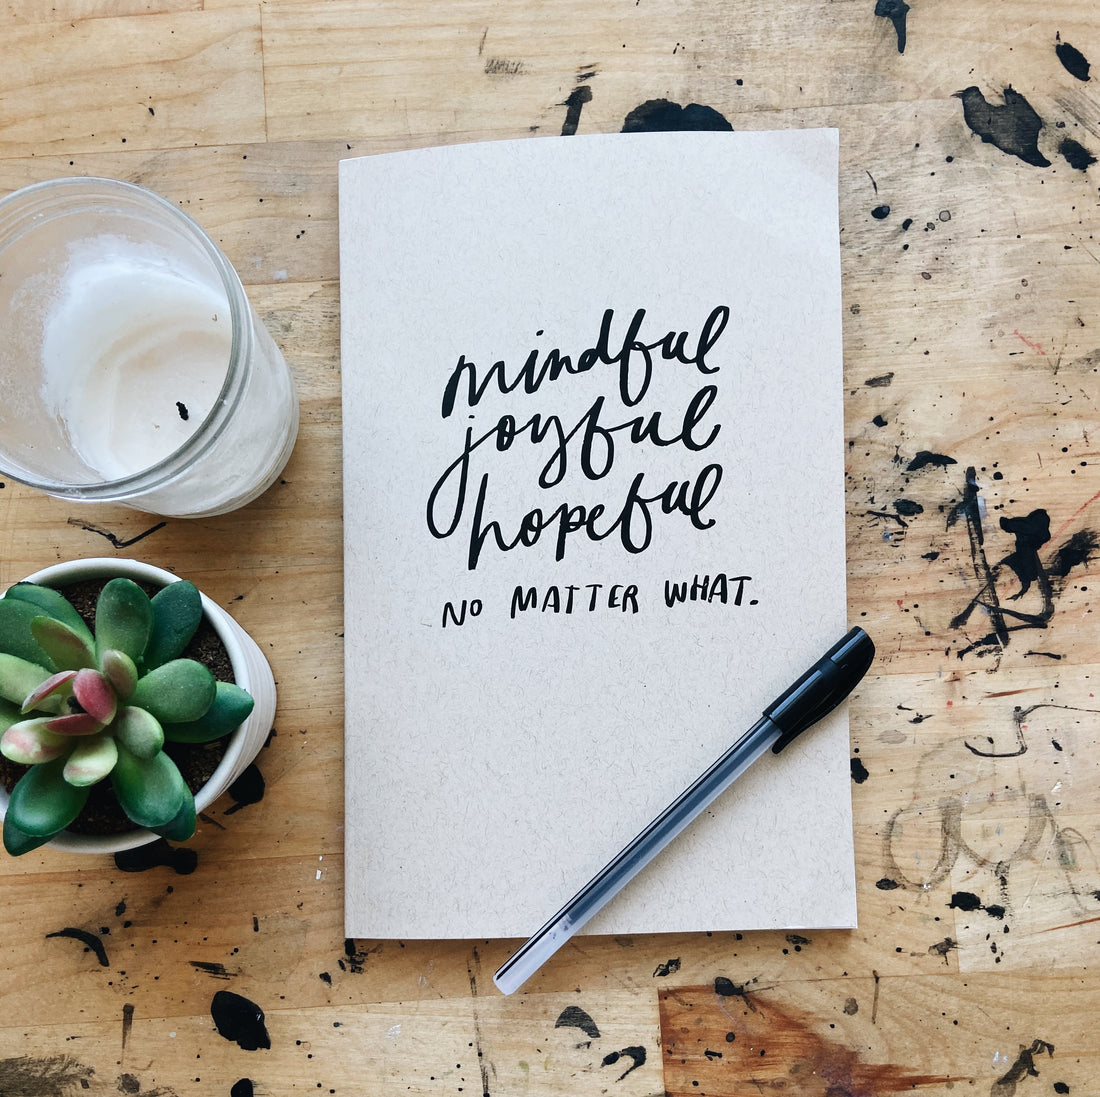 mindful
joyful
hopeful
NO MATTER WHAT.